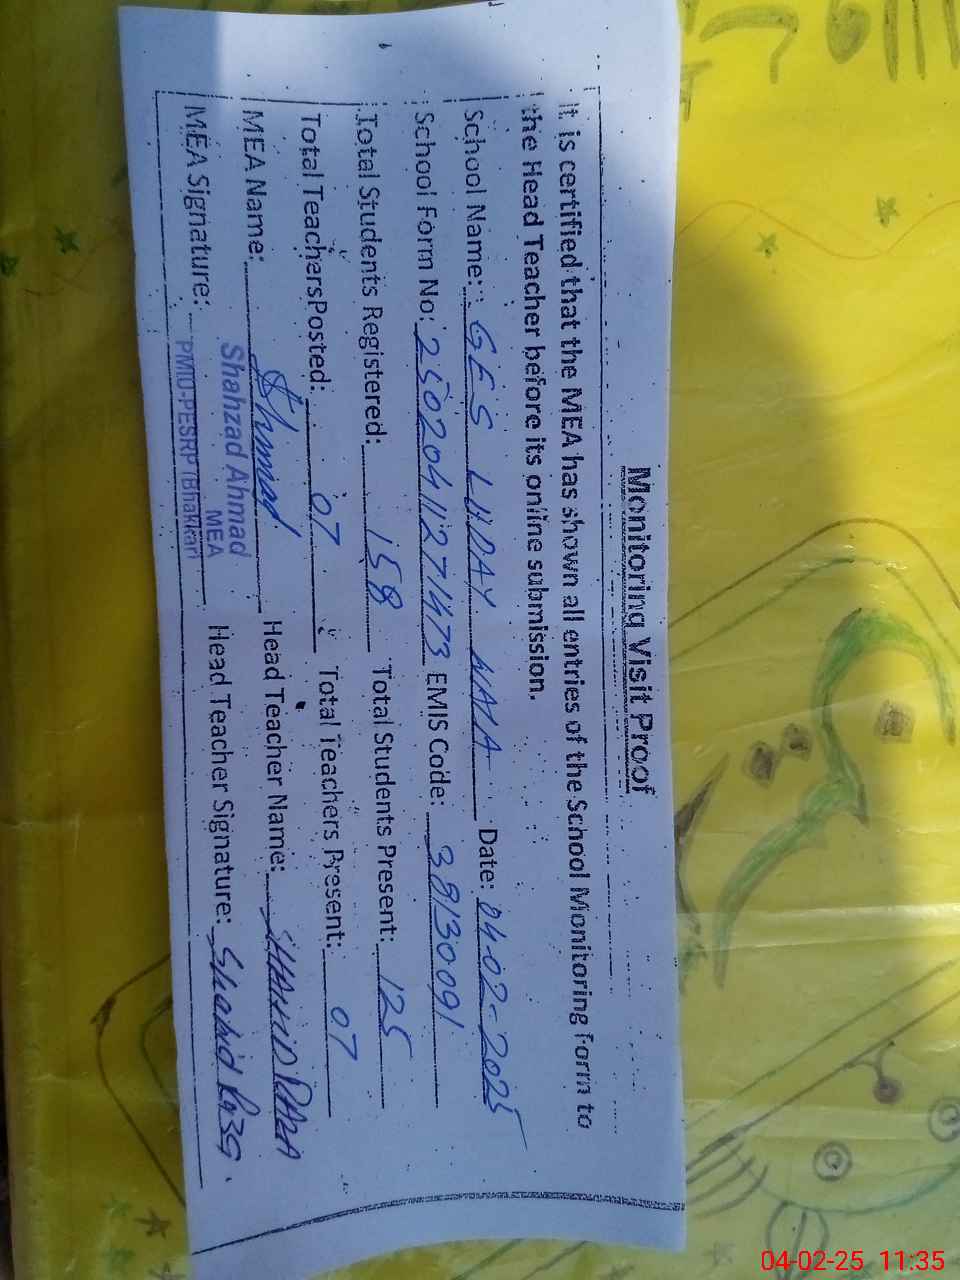 Monitoring Visit Proof
It is certified that the MEA has shown all entries of the School Monitoring Form to
the Head Teacher before its online submission.
School Name: GES LUDAY WALA Date: 04-02-2025
School Form No: 25020411271473 EMIS Code: 38130091
Total Students Registered: 158 Total Students Present: 125
Total Teachers Posted: 07 Total Teachers Present: 07
MEA Name: Ahmad Head Teacher Name: SHAHID RAZA
MEA Signature: Head Teacher Signature: Shahid Raza.
Shahzad Ahmad
MEA
PMIU-PESRP (Bhakkar)
04-02-25 11:35